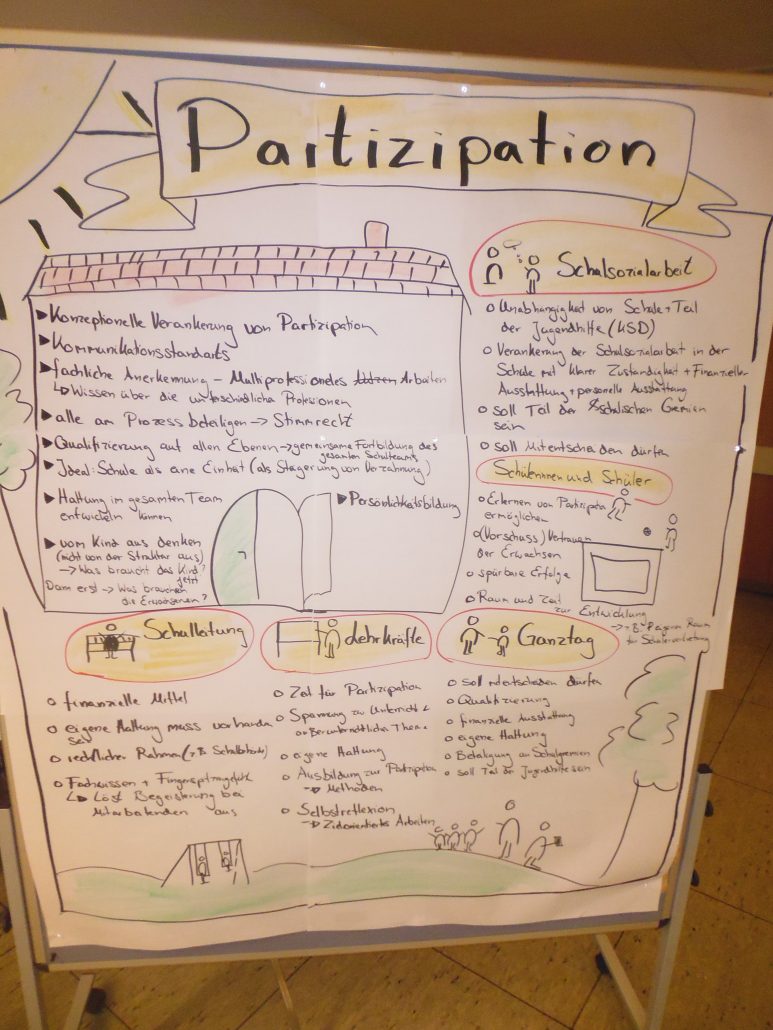 Partizipation
▶ Konzeptionelle Verankerung von Partizipation
▶ Kommunikationsstandarts
▶ fachliche Anerkennung – Multiprofessionelles Arbeiten
↳ Wissen über die unterschiedliche Profesionen
▶ alle am Prozess beteiligen → Stimmrecht
▶ Qualifizierung auf allen Ebenen → gemeinsame Fortbildung des
gesamten Schulteams
▶ Ideal: Schule als eine Einheit (als Steigerung von Verzahnung)
▶ Haltung im gesamten Team
entwickeln können
▶ Persönlichkeitsbildung
▶ vom Kind aus denken
(nicht von der Struktur aus)
→ Was braucht das Kind?
jetzt
Dann erst → Was brauchen
die Erwachsenen?
Schulsozialarbeit
o Unabhängigkeit von Schule + Teil
der Jugendhilfe (KSD)
o Verankerung der Schulsozialarbeit in der
Schule mit klarer Zuständigkeit + Finanzieller
Ausstattung + personelle Ausstattung
o soll Teil der schulischen Gremien
sein
o soll Mitentscheiden dürfen
Schülerinnen und Schüler
o Erlernen von Partizipation
ermöglichen
o (Vorschuss) Vertrauen
der Erwachsen
o spürbare Erfolge
o Raum und Zeit
zur Entwicklung
→ z.B. eigenen Raum
für Schülervertretung
Schulleitung
o finanzielle Mittel
o eigene Haltung muss vorhanden
sein
o rechtlicher Rahmen (z.B. Schulbehörde)
o Fachwissen + Fingerspitzengefühl
↳ Löst Begeisterung bei
Mitarbeitenden aus
Lehrkräfte
o Zeit für Partizipation
o Spannung zu Unterricht
o eigene Haltung
o Ausbildung zur Partizipation
→ Methoden
o Selbstreflexion
→ Zielorientiertes Arbeiten
Ganztag
o soll mitentscheiden dürfen
o Qualifizierung
o finanzielle Ausstattung
o eigene Haltung
o Beteiligung an Schulgremien
o soll Teil der Jugendhilfe sein